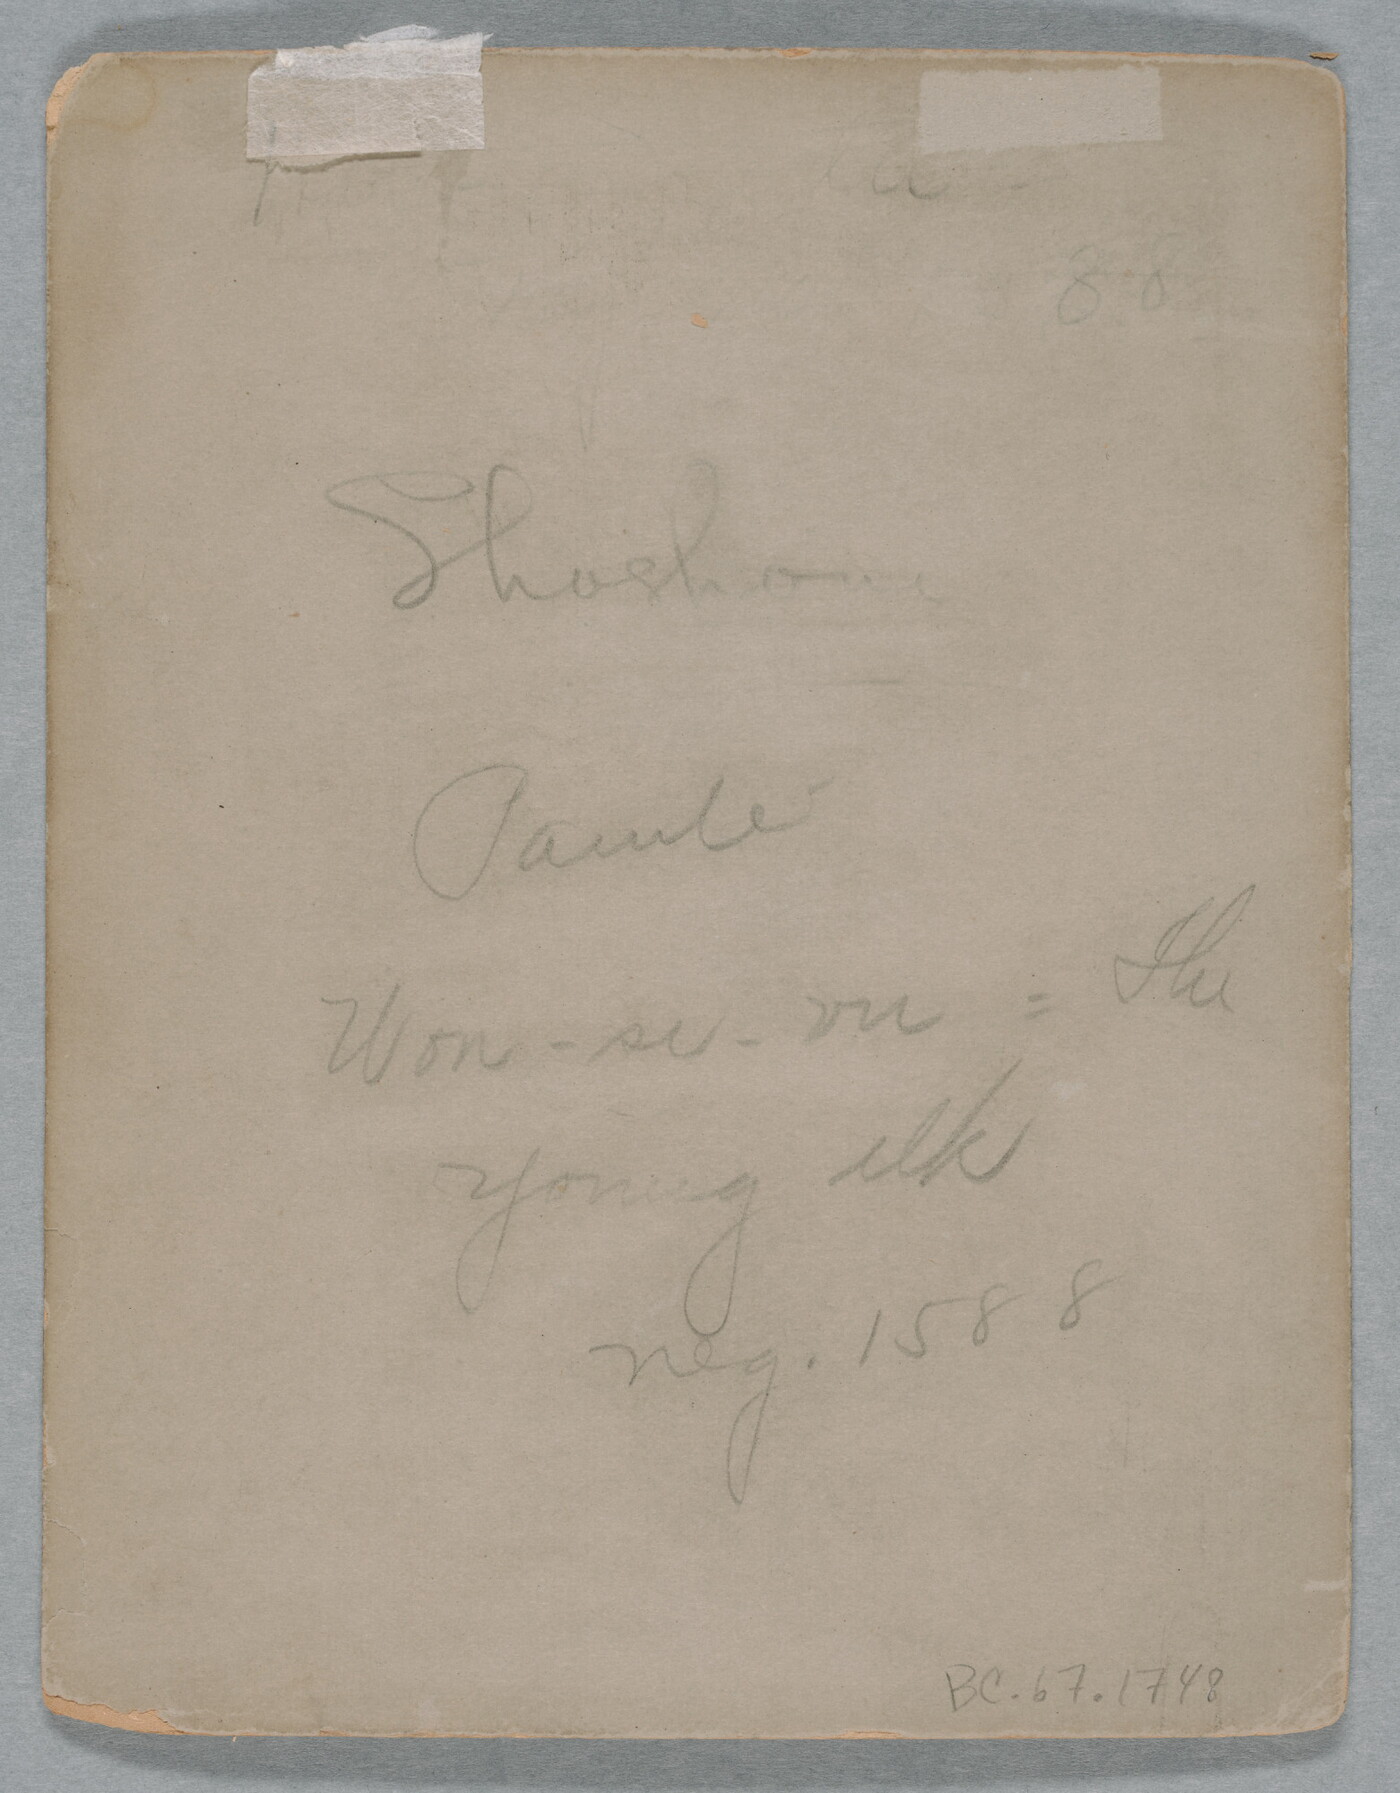 88
Shoshone
Won-si-vu = the
young elk
neg. 1588
BC.67.1748